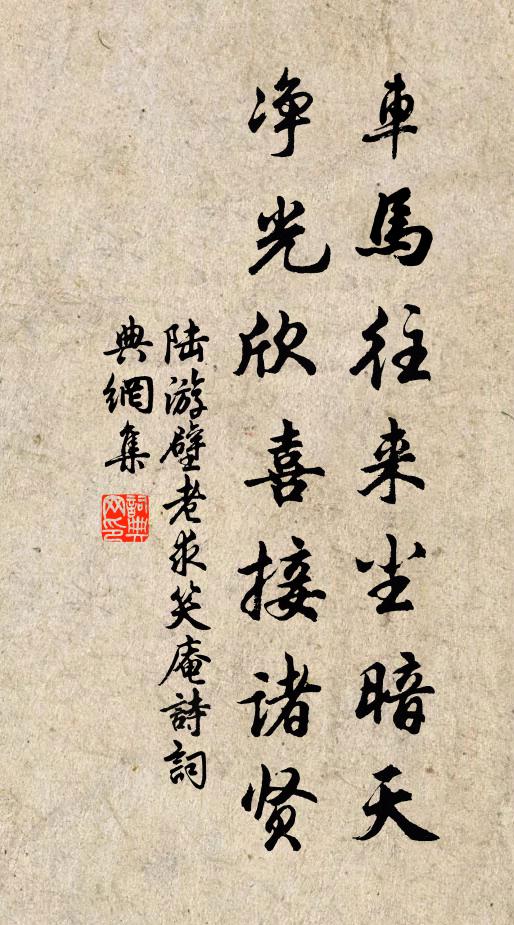 車馬往来尘暗天
净光欣喜接诸贤
陆游壁老求笑庵詩詞
典網集
詞典
网印